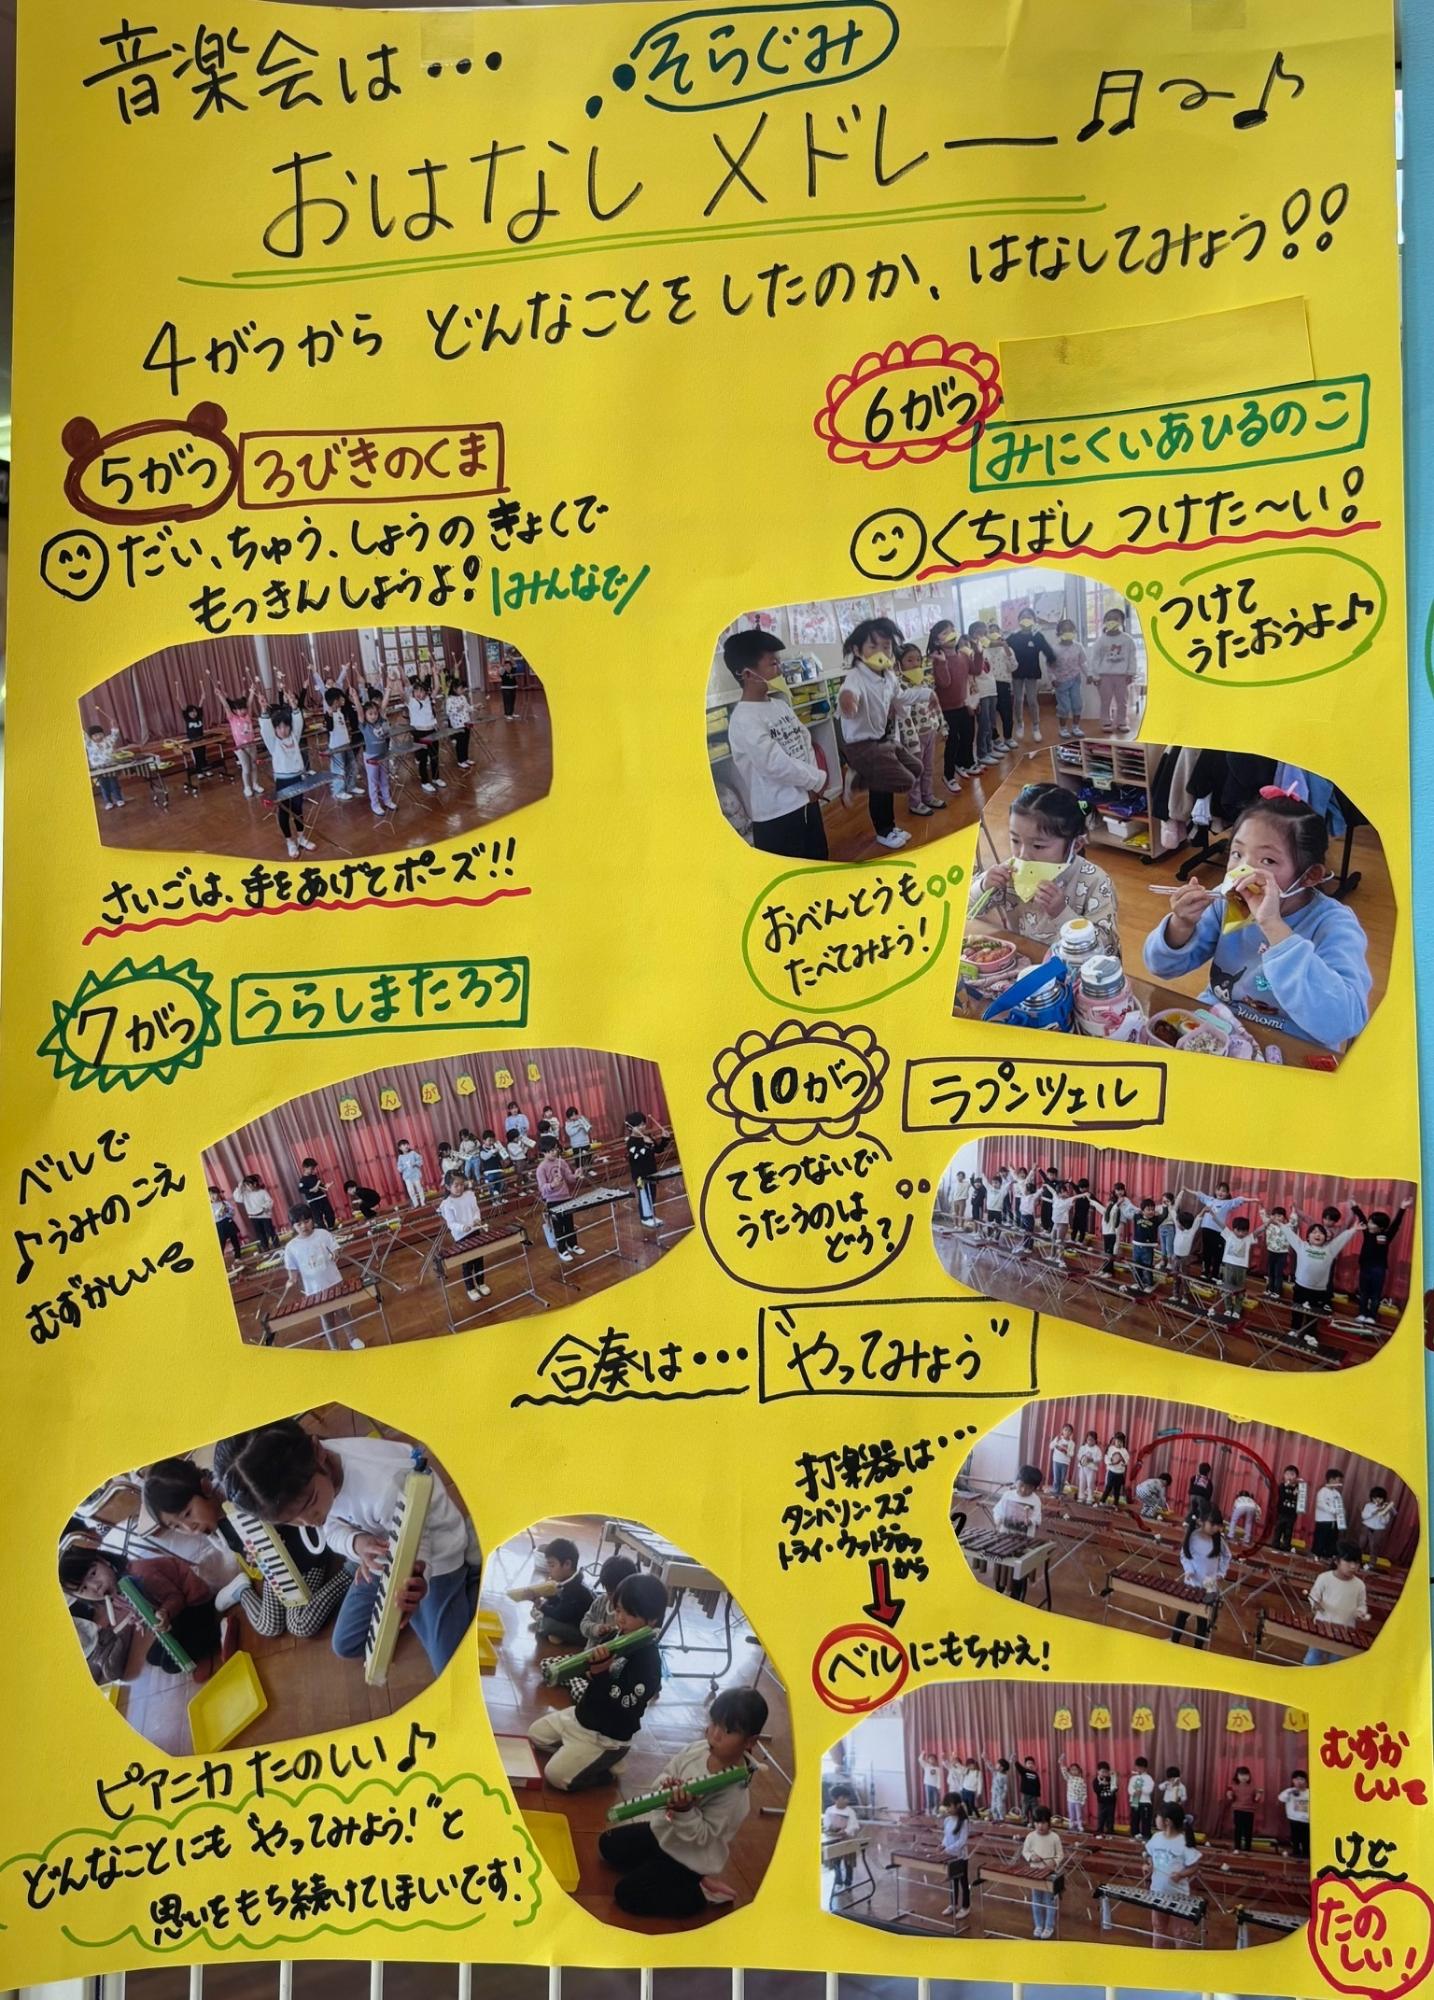 音楽会は…
そらぐみ
おはなしメドレー
4がつから どんなことをしたのか、はなしてみよう!!
5がつ
3びきのくま
だい、ちゅう、しょうの きょくで
もっきんしようよ!
みんなで
さいごは、手をあげてポーズ!!
6がつ
みにくいあひるのこ
くちばし つけた〜い!
つけて
うたおうよ♪
おべんとうも
たべてみよう!
7がつ
うらしまたろう
ベルで
♪うみのこえ
むずかしい
おんがくかい
10がつ
ラプンツェル
てをつないで
うたうのは
どう?
合奏は…
"やってみよう"
打楽器は…
タンバリン・スズ
トライ・ウッドブロック
から
ベルにもちかえ!
おんがくかい
むずか
しいって
けど
たの
しい!
ピアニカ たのしい♪
どんなことにも"やってみよう!"と
思いをもち続けてほしいです!
kuromi